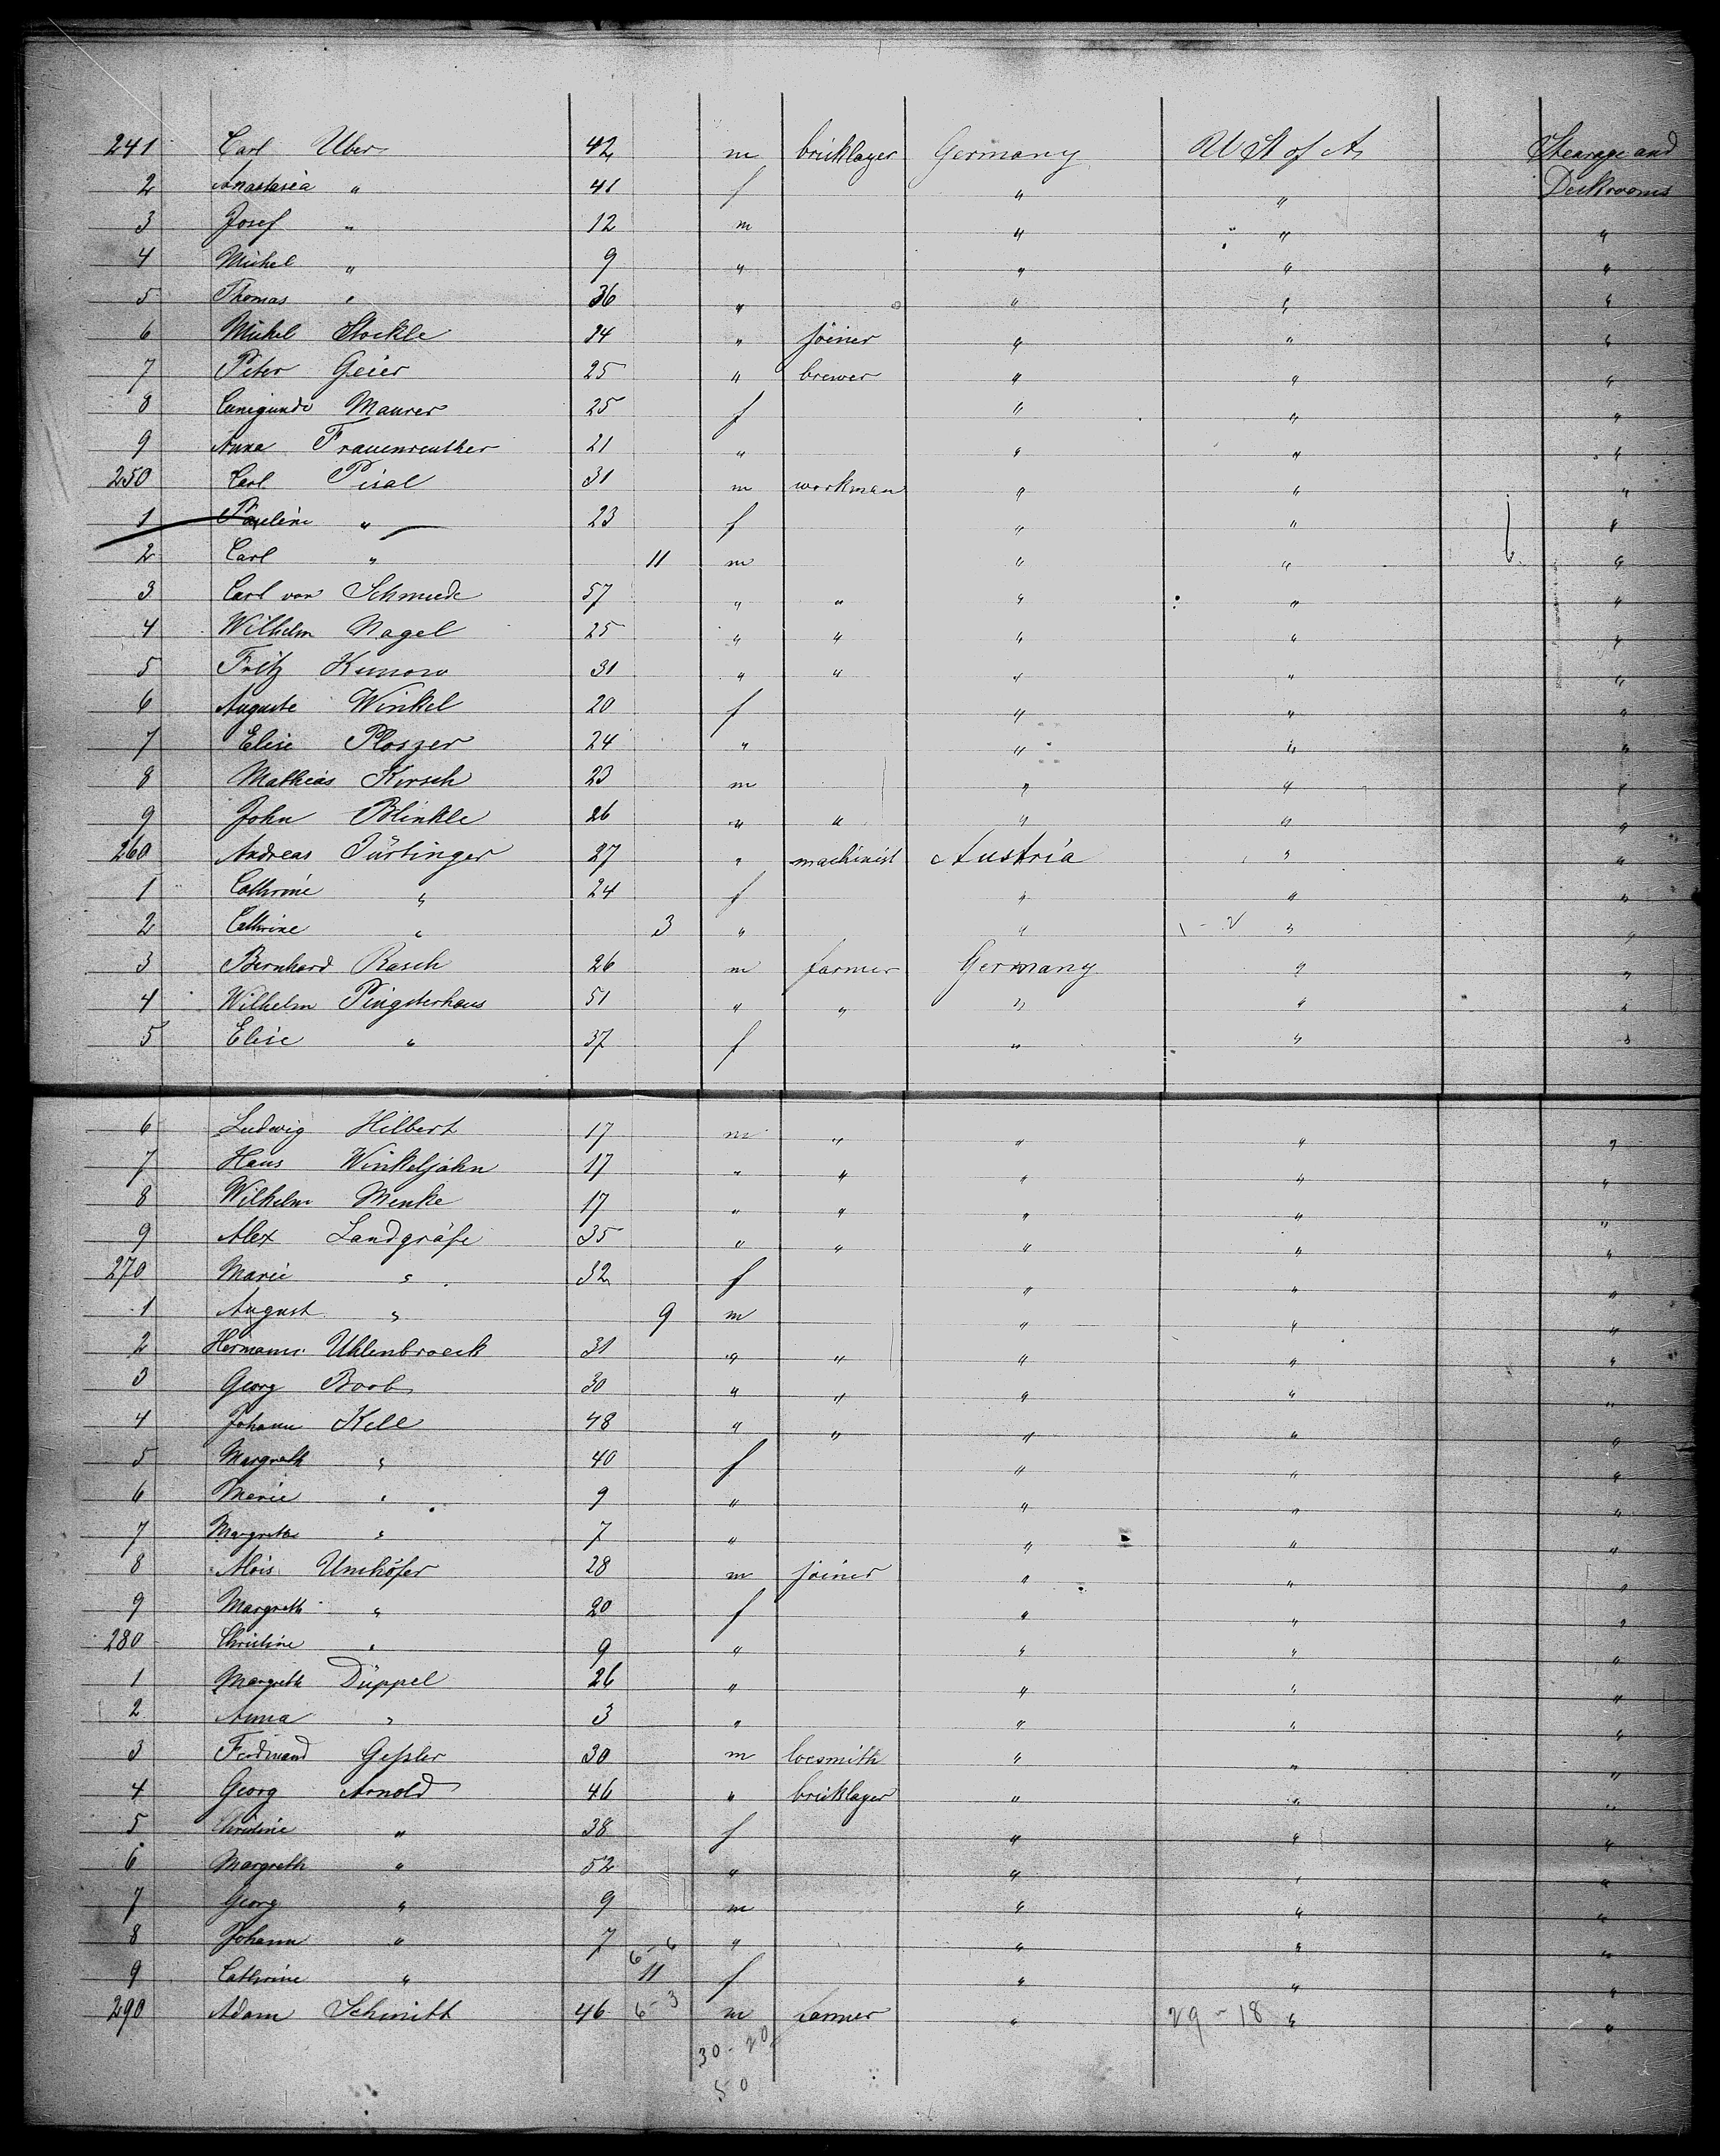 241 Carl Uber 42 m bricklayer Germany U St of A Stearage and
2 Anastasia " 41 f " " Deckrooms
3 Josef " 12 m " " "
4 Michel " 9 " " " "
5 Thomas " 36 " " " "
6 Michel Stockle 24 " joiner " " "
7 Peter Geier 25 " brewer " " "
8 Cunigunde Maurer 25 f " " "
9 Anna Frauenreuther 21 " " " "
250 Carl Pisal 31 m workman " " "
1 Pauline " 23 f " " "
2 Carl " 11 m " " "
3 Carl von Schmiede 57 " " " " "
4 Wilhelm Nagel 25 " " " " "
5 Fritz Kunow 31 " " " " "
6 Auguste Winkel 20 f " " "
7 Elise Ploszer 24 " " " "
8 Mathias Kirsch 23 m " " "
9 John Blinkle 26 " " " " "
260 Andreas 27 " machinist Austria " "
1 Cathrine " 24 f " " "
2 Cathrine " 3 " " " "
3 Bernhard Rasch 26 m farmer Germany " "
4 Wilhelm Pingsterhaus 51 " " " " "
5 Elise " 37 f " " "
6 Ludwig Hilbert 17 m " " " "
7 Hans Winkeljohn 17 " " " " "
8 Wilhelm Menke 17 " " " " "
9 Alex Landgräfe 35 " " " " "
270 Marie " 32 f " " "
1 August " 9 m " " "
2 Hermann Uhlenbroeck 31 " " " " "
3 Georg Boob 30 " " " " "
4 Johann Kell 48 " " " " "
5 Margreth " 40 f " " "
6 Marie " 9 " " " "
7 Margrethe " 7 " " " "
8 Alois Umhöfer 28 m joiner " " "
9 Margreth " 20 f " " "
280 Christine " 9 " " " "
1 Margreth Düppel 26 " " " "
2 Anna " 3 " " " "
3 Ferdinand Gessler 30 m locsmith " " "
4 Georg Arnold 46 " bricklayer " " "
5 Christine " 38 f " " "
6 Margreth " 52 " " " "
7 Georg " 9 m " " "
8 Johann " 7 6-6 " " " "
9 Cathrine " 11 f " " "
290 Adam Schmitt 46 6-3 m farmer " 29-18 " "
30-20
50